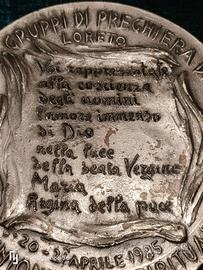 GRUPPI DI PREGHIERA
LORETO
Voi rappresentate
alla coscienza
degli uomini
l'amore immenso
di Dio
nella luce
della beata Vergine
Maria
Regina della pace
20-22 APRILE 1985